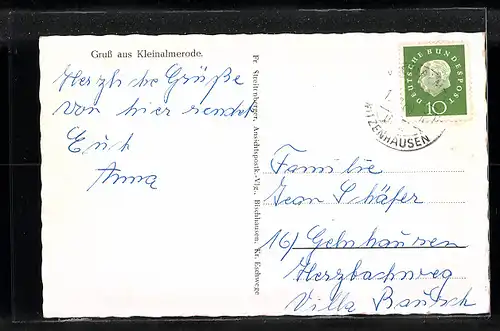 Gruß aus Kleinalmerode.
Herzliche Grüße
von hier sendet
Euch
Anna
Fr. Streitenberger, Ansichtspostk.-Vlg., Bischhausen, Kr. Eschwege
DEUTSCHE BUNDESPOST
10
WITZENHAUSEN
Familie
Jean Schäfer
16) Gelnhausen
Herzbachweg
Villa Bautsch